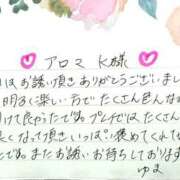 アロマ K様
はお誘い頂きありがとうございまし
明るく楽しい方でたくさん色んなお
けて良かったです。プレイではたくさん
長くなって頂きいっぱい褒めてくれて
です。またお誘いお待ちしております
ゆま